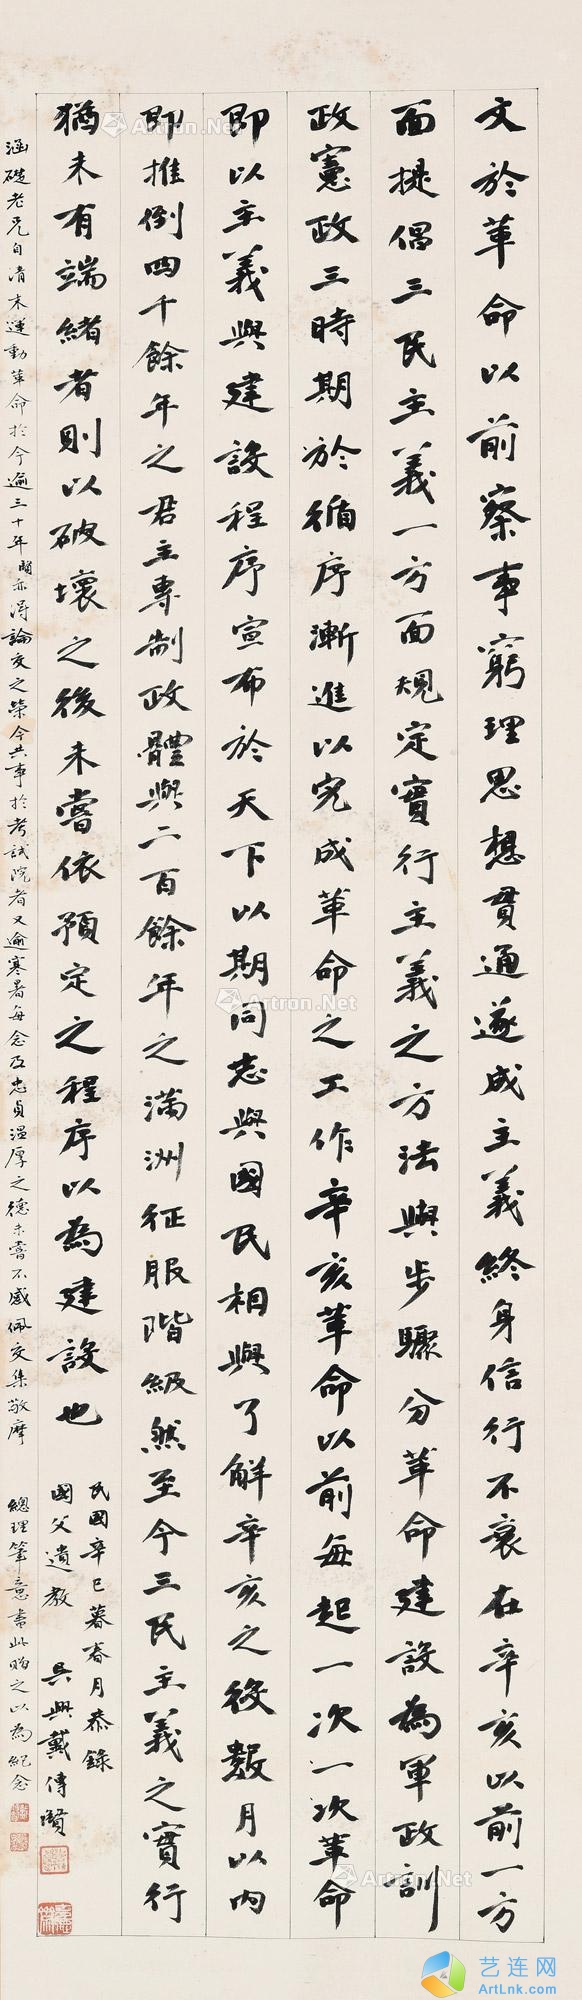 文於革命以前察事窮理思想貫通遂成主義終身信行不衰在辛亥以前一方
面提倡三民主義一方面規定實行主義之方法與步驟分革命建設為軍政訓
政憲政三時期於循序漸進以完成革命之工作辛亥革命以前每起一次一次革命
即以主義與建設程序宣布於天下以期同志與國民相與了解辛亥之後數月以內
即推倒四千餘年之君主專制政體與二百餘年之滿洲征服階級然至今三民主義之實行
猶未有端緒者則以破壞之後未嘗依預定之程序以為建設也
民國辛巳暮春月恭錄
國父遺教 吳興戴傳賢
涵礎老兄自清末運動革命於今逾三十年賢亦得論交之榮今共事於考試院者又逾寒暑每念及忠貞溫厚之德未嘗不感佩交集敬摩
總理筆意書此貽之以為紀念
Artron.Net
Artron.Net
Artron.Net
Artron.Net
Artron.Net
Artron.Net
艺连网
ArtLnk.com